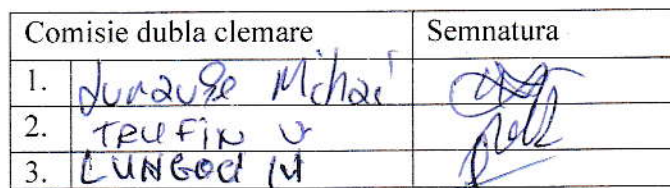 Comisie dubla clemare Semnatura
1. Mihai
2. TRUFIN V
3. LUNGOCI M